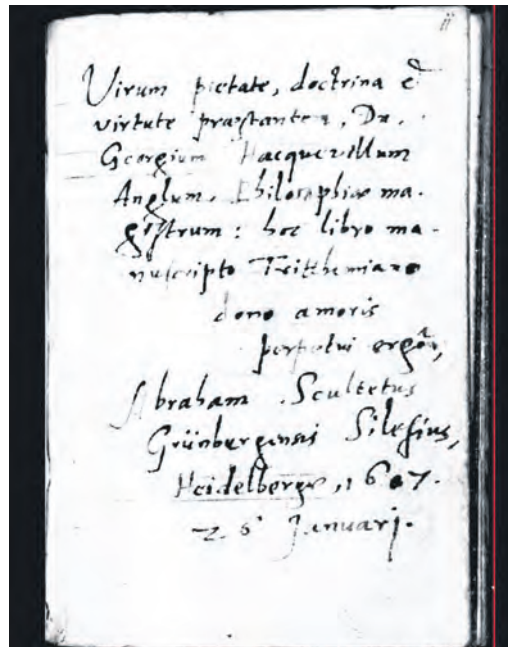 ii
Virum pietate, doctrina &
virtute præstantem, Dn.
Georgium Hacquevillum
Anglum. Philosophiæ ma-
gistrum: hoc libro ma-
nuscripto Tritthemiano
dono amoris
perpetui ergô,
Abraham. Scultetus
Grünbergensis Silesius,
Heidelbergæ, 1607.
26 Januarj.